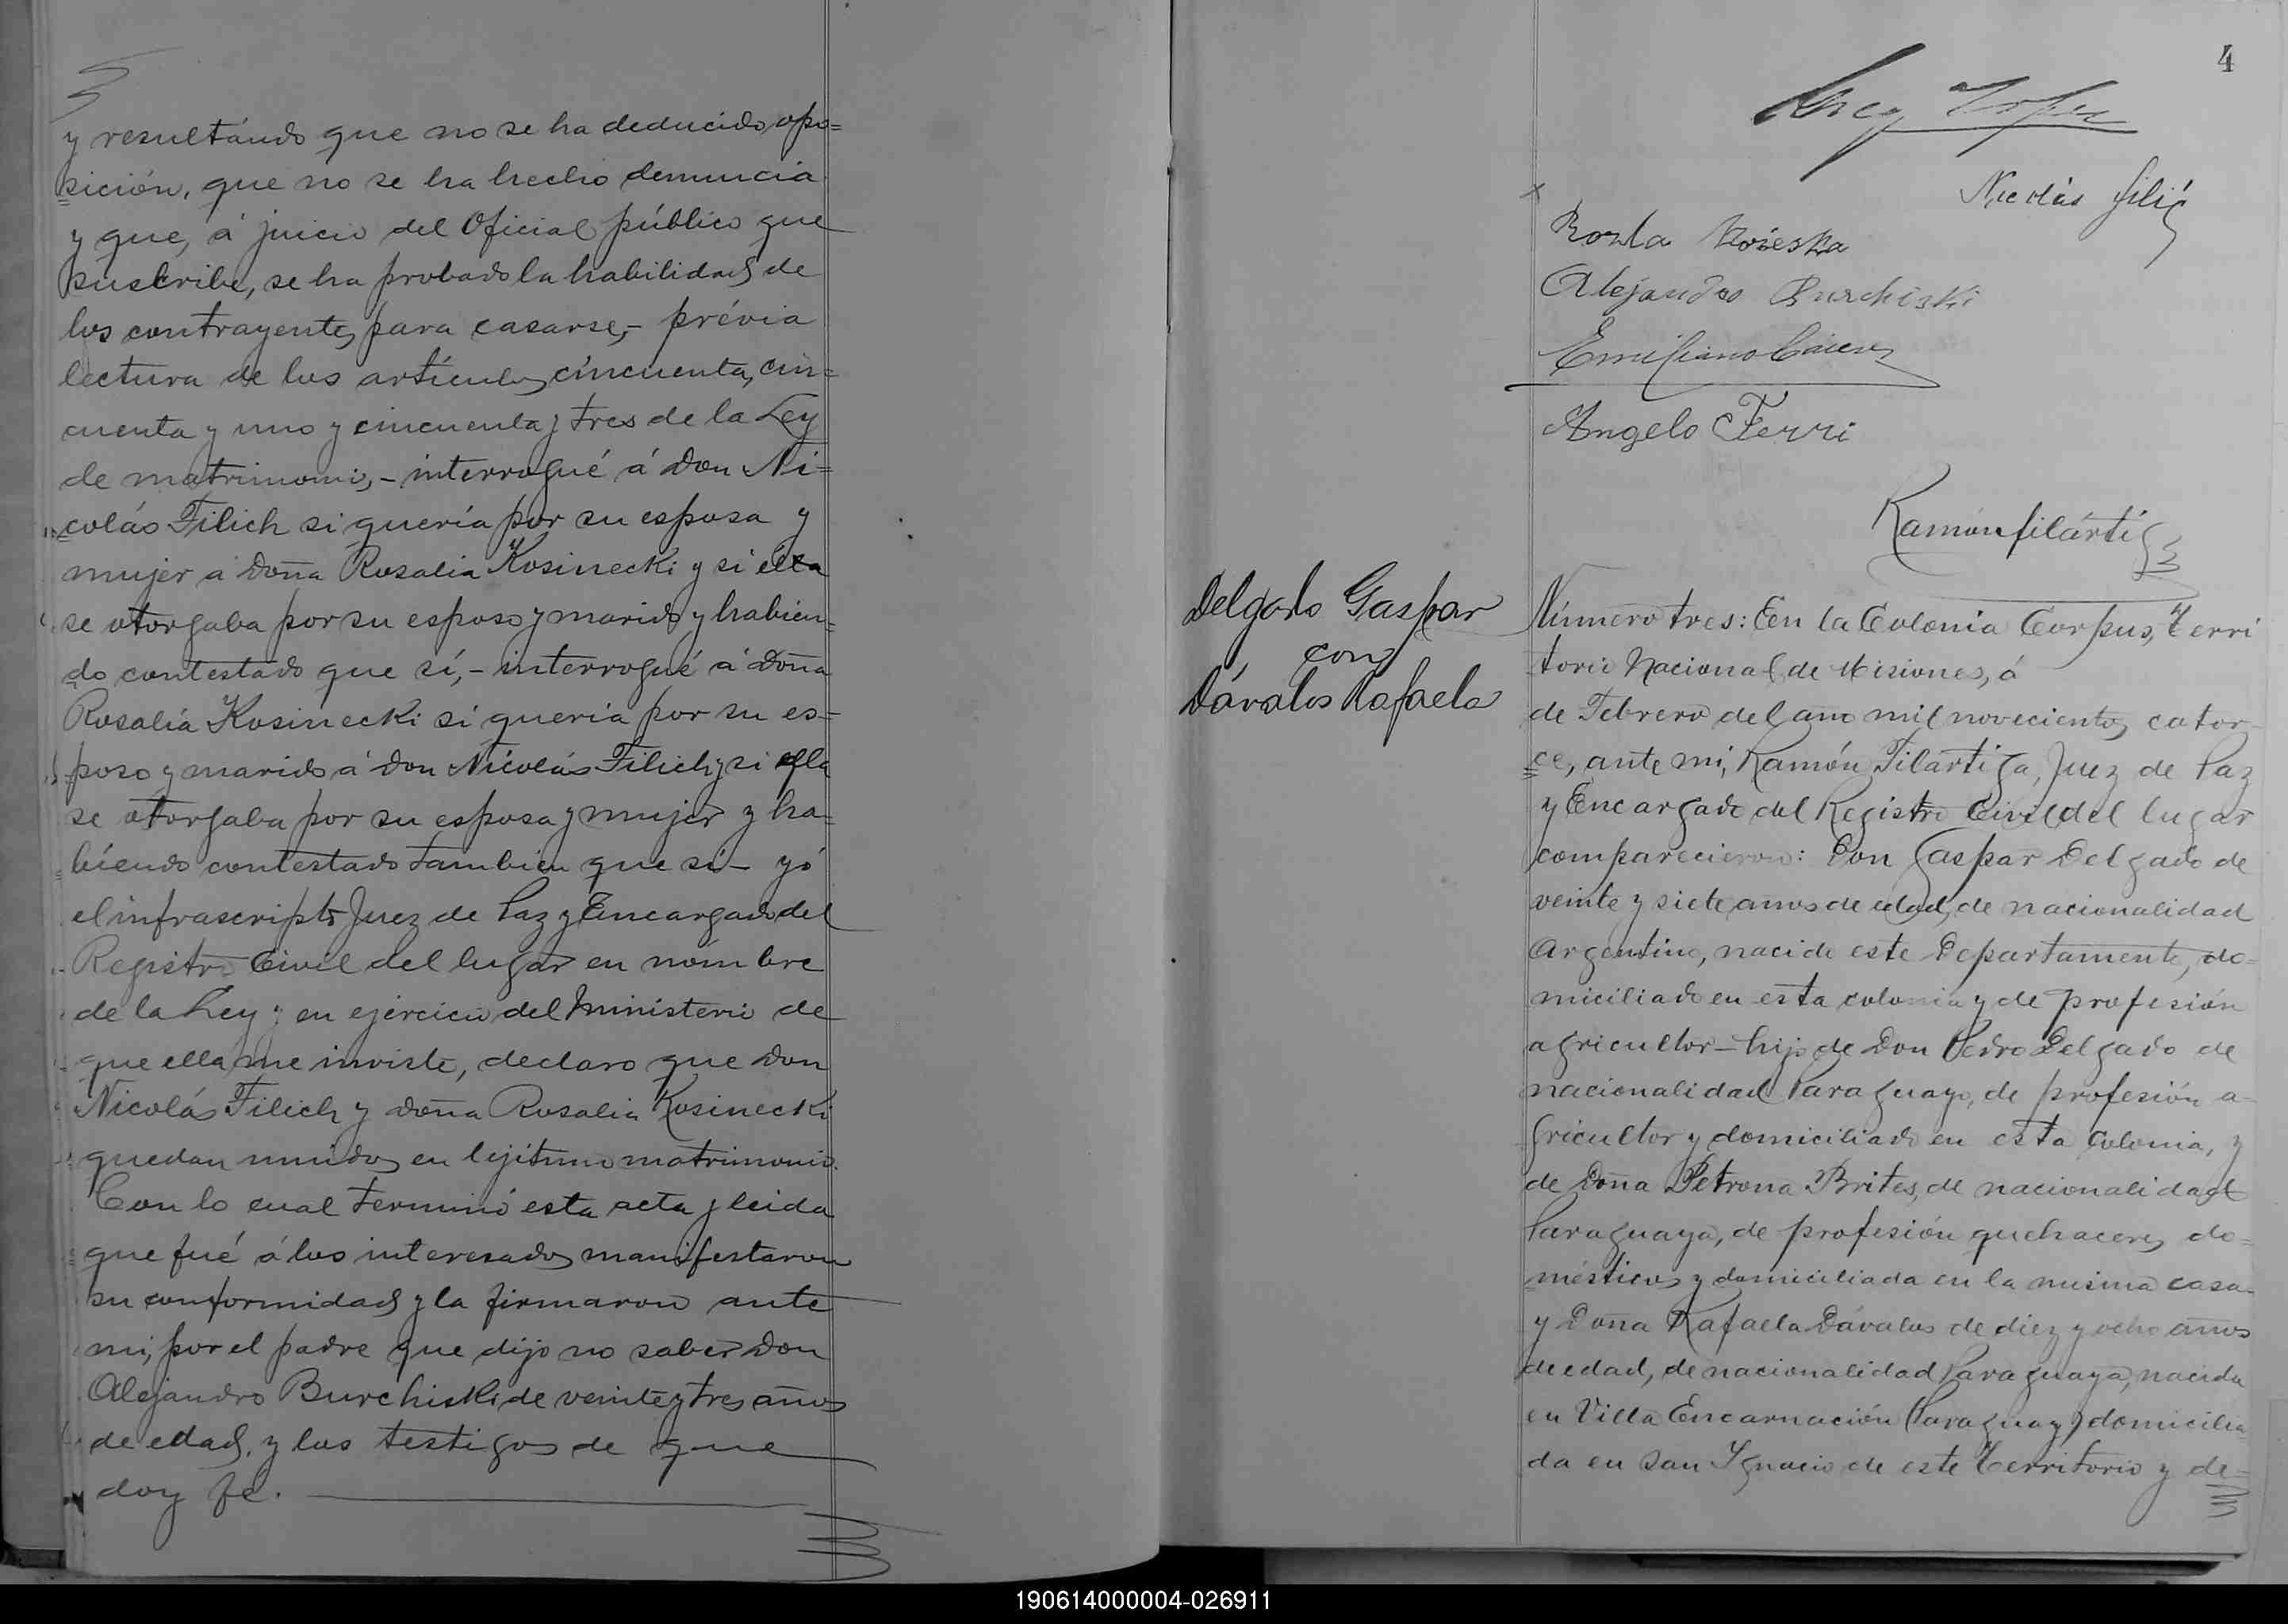 y resultándo que no se ha deducido opo=
sición, que no se ha hecho denuncia
y que, á juicio del Oficial público que
suscribe, se ha probado la habilidad de
los contrayentes para casarse,- prévia
lectura de los artículos cincuenta, cin=
cuenta y uno y cincuenta y tres de la Ley
de matrimonio,- interrogué á Don Ni=
colás Filich si quería por su esposa y
mujer a Doña Rosalia Kosinecki y si ella
se otorgaba por su esposo y marido y habien=
do contestado que sí,- interrogué á Doña
Rosalía Kosinecki si queria por su es=
poso y marido á Don Nicolás Filich y si ella
se otorgaba por su esposa y mujer y ha=
biendo contestado tambien que sí- yó
el infrascripto Juez de Paz y Encargado del
Registro Civil del lugar en nómbre
de la Ley y en ejercicio del Ministerio de
que ella me inviste, declaro que Don
Nicolás Filich y Doña Rosalia Kosinecki
quedan unidos en lejítimo matrimonio.
Con lo cual terminó esta acta y leida
que fué á los interesados manifestaron
su conformidad y la firmaron ante
mi, por el padre que dijo no saber Don
Alejandro Burchiski de veinte y tres años
de edad, y los testigos de que
doy fe.
4
Nicolás Filić
Alejandro Burchiski
Emiliano
Angelo Ferri
Ramón Filártiga
Delgado Gaspar
con
Dávalos Rafaela
Número tres: En la Colonia Corpus, Terri
torio Nacional de Misiones, á
de Febrero del año mil novecientos cator-
ce, ante mí, Ramón Filártiga, Juez de Paz
y Encargado del Registro Civil del lugar
comparecieron: Don Gaspar Delgado de
veinte y siete años de edad, de nacionalidad
Argentino, nacido este Departamento, do=
miciliado en esta colonia y de profesión
agricultor- hijo de Don Pedro Delgado de
nacionalidad Paraguayo, de profesión a-
gricultor y domiciliado en esta Colonia, y
de Doña Petrona Brites, de nacionalidad
Paraguaya, de profesión quehaceres do=
mésticos y domiciliada en la misma casa-
y Doña Rafaela Dávalos de diez y ocho años
de edad, de nacionalidad Paraguaya, nacida
en Villa Encarnación (Paraguay) domicilia=
da en San Ygnacio de este Territorio y de=
190614000004-026911